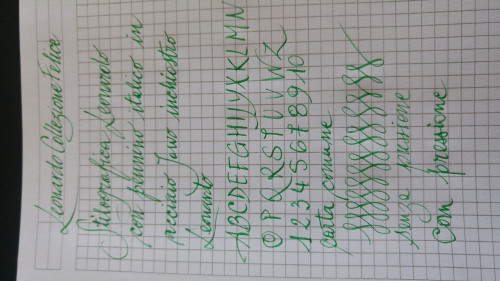 Leonardo Collezione Felice
Stilografica Leonardo
con pennino italico in
acciaio Jowo inchiostro
Leonardo
ABCDEFGHIJYXKLMN
OPQRSTUVWZ
1 2 3 4 5 6 7 8 9 10
carta comune
senza pressione
con pressione